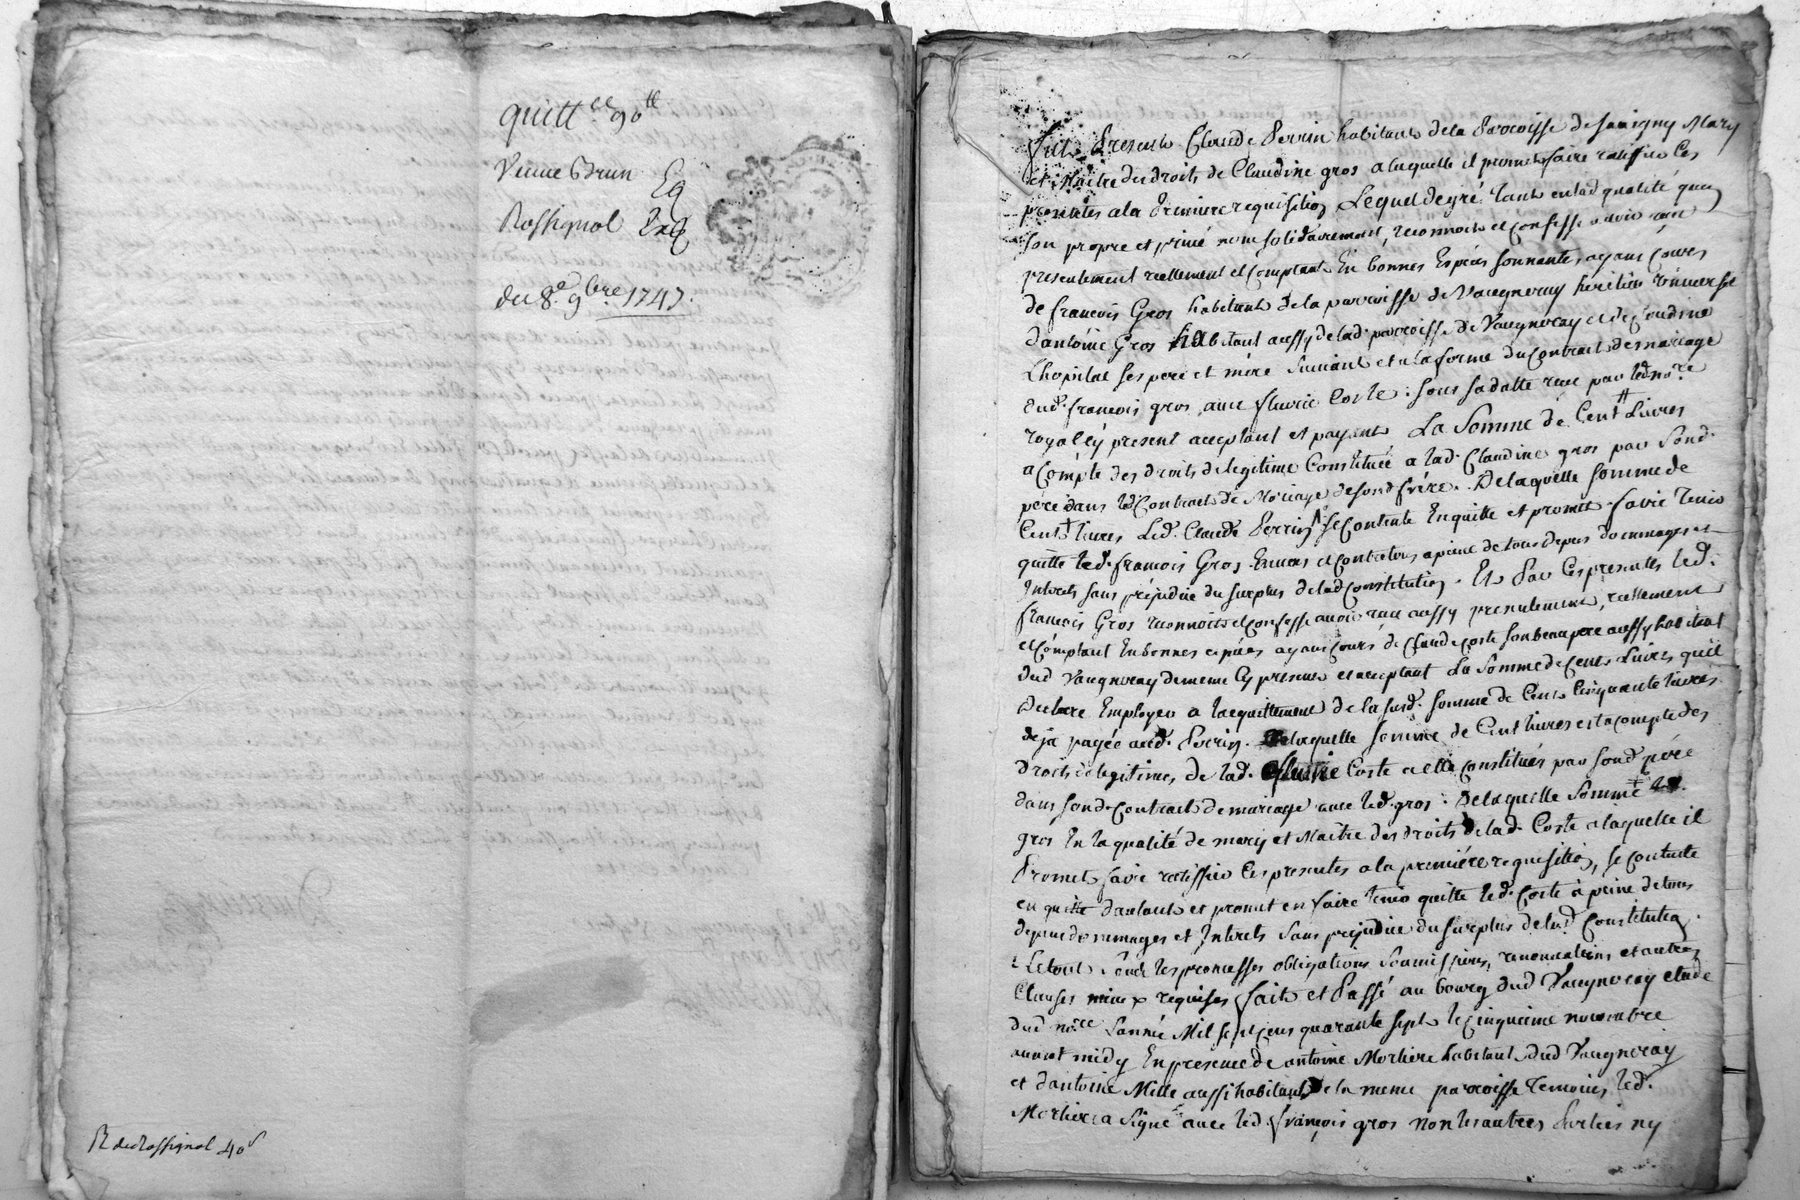 quitt.ce 90tt
Veuve Brun Eg
Rossignol
du 8e 9bre 1747.
R de Rossignol 40s
fut Present Claude Perrin habitant de la Parroisse de Savigny Mary
et Maitre des droits de Claudine gros a laquelle il promet faire ratiffier Ces
presentes a la Premiere requisition Lequel de gré, tant en lad qualité quen
son propre et privé nom solidairement, reconnoit et confesse avoir
presentement reellement et comptant En bonnes Espéces sonnantes ayant Cours
de francois Gros habitant de la parroisse de Vaugneray heritier
dantoine Gros habitant aussy de lad. parroisse de Vaugneray et de Claudine
Lhopital ses pere et mére Suivant et a la forme du Contrait de mariage
Dud. francois gros avec fleurie Coste : sous sa datte recu par led no.re
royal cy present acceptant et payant La Somme de Centtt Livres
a Compte des droits de legitime Constitués a lad. Claudine gros par Sond.
pére dans led Contrait de Mariage de sond frére. De laquelle Somme de
Cent livres Led. Claude Perrin Se Contente En quitte et promet faire tenir
quitte led. francois Gros Envers et Contre tous a peine de tous depens dommages et
Interets sans préjudice du surplus de lad Constitution. Et Par Ces presentes Led.
francois Gros reconnoit et Confesse avoir recu aussy presentement, reellement
et Comptant En bonnes espéces ayant Cours de Claude Coste son beau pere aussy habitant
dud Vaugneray de meme Cy present et acceptant La Somme de Cent Livres quil
Declare Employer a lacquittement de la susd. somme de Cent Cinquante livres
deja payée aud. Perrin. De laquelle Somme de Cent livres et a compte des
droits de legitimes, de lad. fleurie Coste a elle constitués par sond pére
dans sond. Contrait de mariage avec led. gros : De laquelle Somme led.
gros En la qualité de mary et Maitre des droits de lad. Coste a laquelle il
Promet faire ratiffier Ces presentes a la premiére requisition, se contente
en quitte dautant et promet en faire tenir quitte led. Coste à peine de tous
depens dommages et Interets Sans prejudice du surplus de lad Constitution.
Le tout Sous les promesses obligations Soumissions, renonciations et autres
Clauses mieux requises fait et Passé au bourg dud Vaugneray etude
dud no.re Lannée Mil sept Cens quarante sept le cinquieme novembre
avant midy En presence de antoine Mortiere habitant dud Vaugneray
et dantoine Mille aussi habitant de la meme parroisse temoins, led.
Mortiere a Signé avec led. françois gros non les autres Parties ny